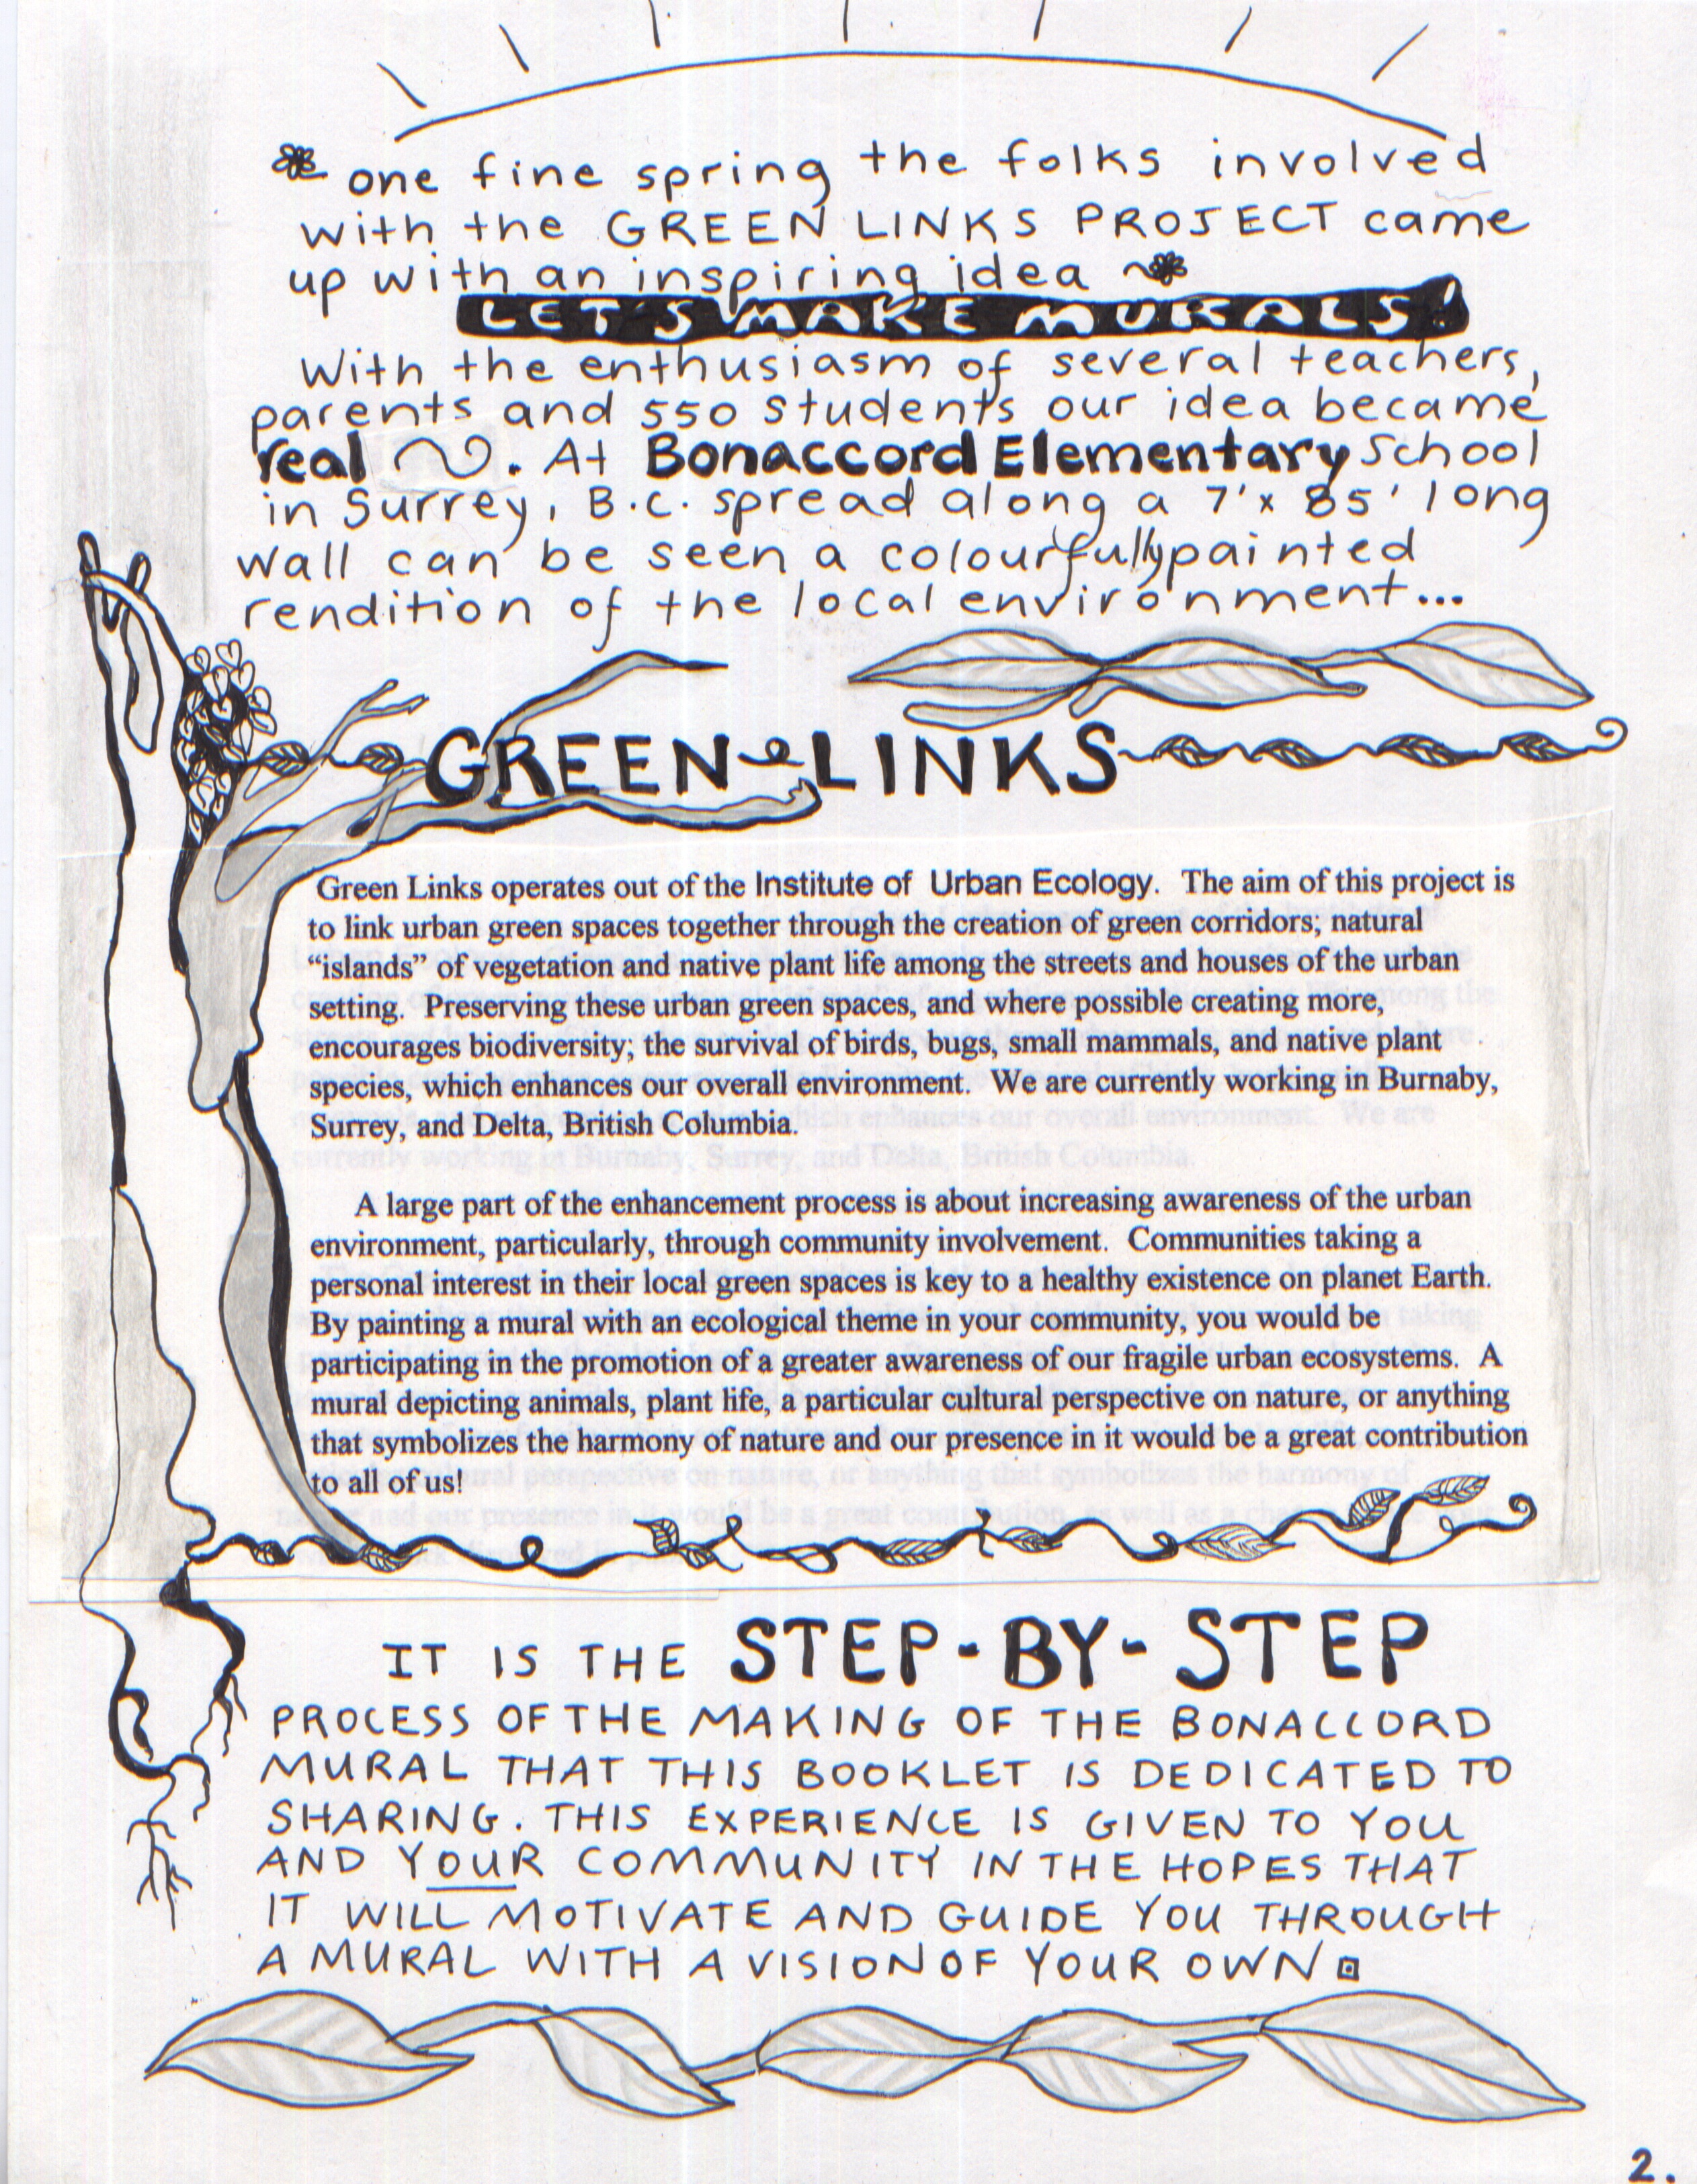 one fine spring the folks involved
with the GREEN LINKS PROJECT came
up with an inspiring idea
LET'S MAKE MURALS!
With the enthusiasm of several teachers,
parents and 550 students our idea became
real. At Bonaccord Elementary School
in Surrey, B.C. spread along a 7' x 85' long
wall can be seen a colourfully painted
rendition of the local environment...
GREEN LINKS
Green Links operates out of the Institute of Urban Ecology. The aim of this project is
to link urban green spaces together through the creation of green corridors; natural
“islands” of vegetation and native plant life among the streets and houses of the urban
setting. Preserving these urban green spaces, and where possible creating more,
encourages biodiversity; the survival of birds, bugs, small mammals, and native plant
species, which enhances our overall environment. We are currently working in Burnaby,
Surrey, and Delta, British Columbia.
A large part of the enhancement process is about increasing awareness of the urban
environment, particularly, through community involvement. Communities taking a
personal interest in their local green spaces is key to a healthy existence on planet Earth.
By painting a mural with an ecological theme in your community, you would be
participating in the promotion of a greater awareness of our fragile urban ecosystems. A
mural depicting animals, plant life, a particular cultural perspective on nature, or anything
that symbolizes the harmony of nature and our presence in it would be a great contribution
to all of us!
IT IS THE STEP-BY-STEP
PROCESS OF THE MAKING OF THE BONACCORD
MURAL THAT THIS BOOKLET IS DEDICATED TO
SHARING. THIS EXPERIENCE IS GIVEN TO YOU
AND YOUR COMMUNITY IN THE HOPES THAT
IT WILL MOTIVATE AND GUIDE YOU THROUGH
A MURAL WITH A VISION OF YOUR OWN
2.